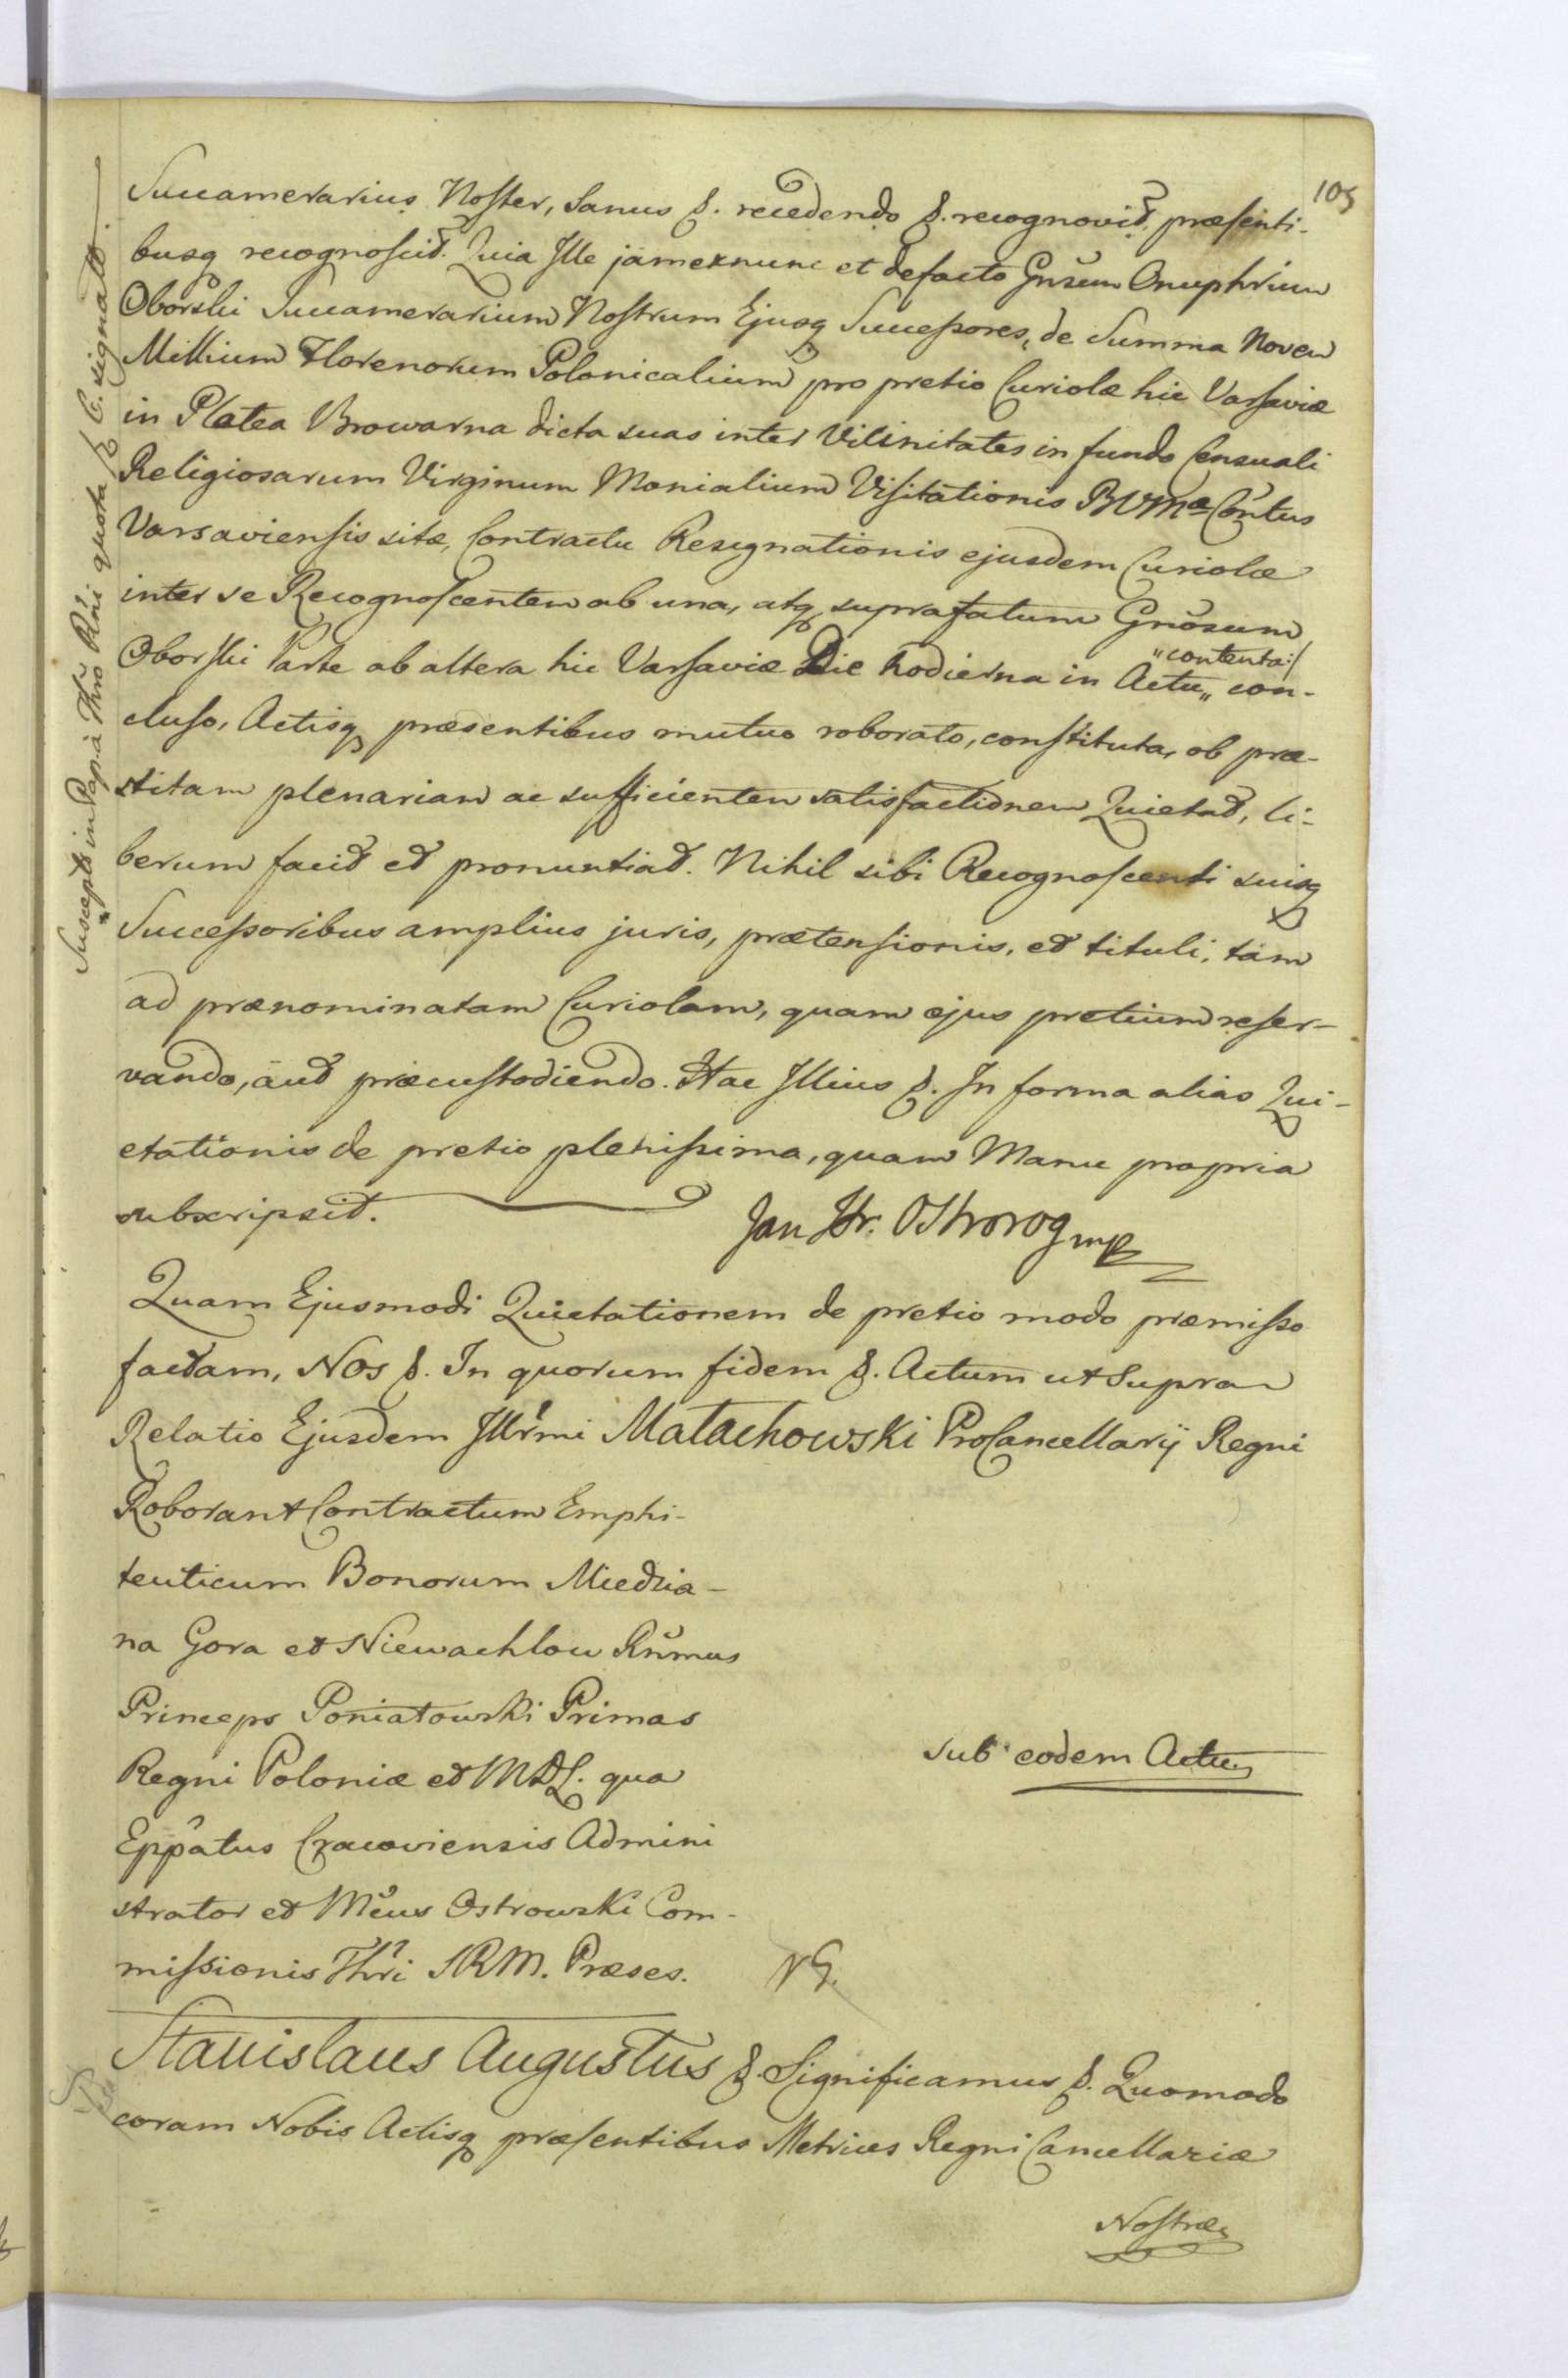 105
Succamerarius Noster, Sanus &. recedendo &. recognovit, præsenti-
busq recognoscit. Quia Ille jamexnunc et defacto Gnsum Onuphrium
Oborski Succamerarium Nostrum Ejusq Successores, de Summa Novem
Millium Florenorum Polonicalium pro pretio Curiolæ hic Varsaviæ
in Platea Browarna dicta suas inter Vicinitates in fundo Censuali
Religiosarum Virginum Monialium Visitationis BVMæ Contus
Varsaviensis sitæ, Contractu Resignationis ejusdem Curiolæ
inter se Recognoscentem ab una, atq suprafatum Gnosum
Oborski Parte ab altera hic Varsaviæ Die hodierna in Actu „contenta:/ con-
cluso, Actisq præsentibus mutuo roborato, constituta, ob præ-
stitam plenariam ac sufficientem satisfactionem Quietat, li-
berum facit et pronuntiat. Nihil sibi Recognoscenti suisq
Successoribus amplius juris, prætensionis, et tituli, tam
ad prænominatam Curiolam, quam ejus pretium reser-
vando, aut præcustodiendo. Hac Illius &. In forma alias Qui-
etationis de pretio plenissima, quam Manu propria
subscripsit.
Jan Hr. Ostrorog mp
Quam Ejusmodi Quietationem de pretio modo præmisso
factam, Nos &. In quorum fidem &. Actum ut Supra
Relatio Ejusdem Illrmi Małachowski ProCancellarij Regni
Roborant Contractum Emphi-
teuticum Bonorum Miedzia-
na Gora et Niewachlow Rnmus
Princeps Poniatowski Primas
Regni Poloniæ et MDL. qua
Eppatus Cracoviensis Admini
strator et Mcus Ostrowski Com-
missionis Thri SRM. Præses.
sub eodem Actu
NG.
Stanislaus Augustus &. Significamus &. Quomodo
coram Nobis Actisq præsentibus Metrices Regni Cancellariæ
Nostræ
Suscepta in Pap: à Thro Rni quota C. signato